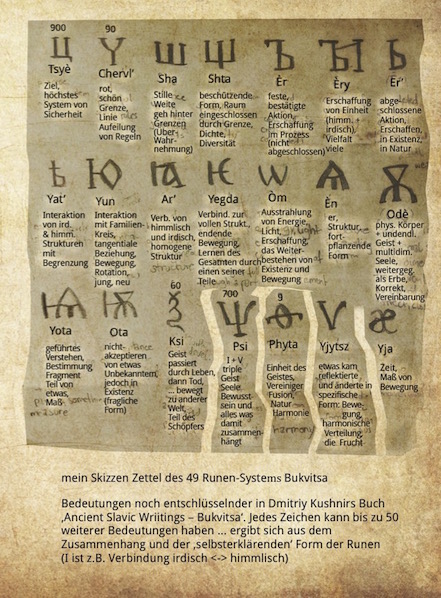 900
Ц
Tsyè
Ziel,
höchstes
System von
Sicherheit
90
Ч
Chervl'
rot,
schön
Grenze,
Linie
Aufeilung
von Regeln
Ш
Sha
Stille
Weite
geh hinter
Grenzen
(Über-
Wahr-
nehmung)
Щ
Shta
beschützende
Form, Raum
eingeschlossen
durch Grenze,
Dichte,
Diversität
Ъ
Èr
feste,
bestätigte
Aktion,
Erschaffung
im Prozess
(nicht
abgeschlossen)
Ы
Èry
Erschaffung
von Einheit
(himm. +
irdisch),
Vielfalt
viele
Ь
Ër'
abge-
schlossene
Aktion,
Erschaffen,
in Existenz,
in Natur
Ѣ
Yat'
Interaktion
von ird.
& himm.
Strukturen
mit
Begrenzung
Ю
Yun
Interaktion
mit Familien-
Kreis,
tangentiale
Beziehung,
Bewegung,
Rotation,
jung, neu
Ꙗ
Ar'
Verb. von
himmlisch
und irdisch,
homogene
Struktur
structure
Ѥ
Yegda
Verbind. zur
vollen Strukt.,
endende
Bewegung,
Lernen des
Gesamten durch
einen seiner
Teile
Ѡ
Òm
Ausstrahlung
von Energie,
Licht,
Erschaffung,
das Weiter-
bestehen von
Existenz und
Bewegung
Ѧ
Ën
er,
Struktur,
fort-
pflanzende
Form
Ѫ
Odè
phys. Körper
+ unendl.
Geist +
multidim.
Seele,
weitergeg.
als Erbe,
Korrekt.,
Vereinbarung
Ѩ
Yota
geführtes
Verstehen,
Bestimmung,
Fragment
Teil von
etwas,
Maß
measure
Ѭ
Ota
nicht-
akzeptieren
von etwas
Unbekanntem,
jedoch in
Existenz
(fragliche
Form)
60
Ѯ
Ksi
Geist
passiert
durch Leben,
dann Tod,
... bewegt
zu anderer
Welt,
Teil des
Schöpfers
700
Ѱ
Psi
I + V
triple
Geist
Seele
Bewusst-
sein und
alles was
damit
zusammen-
hängt
9
Ѳ
Phyta
Einheit des
Geistes,
Vereiniger
Fusion,
Natur
Harmonie
harmony
Ѵ
Yjytsz
etwas kam,
reflektierte
und änderte in
spezifische
Form: Bewe-
gung,
harmonische
Verteilung,
die Frucht
æ
Yja
Zeit,
Maß von
Bewegung
mein Skizzen Zettel des 49 Runen-Systems Bukvitsa
Bedeutungen noch entschlüsselnder in Dmitriy Kushnirs Buch
‚Ancient Slavic Wriitings – Bukvitsa'. Jedes Zeichen kann bis zu 50
weiterer Bedeutungen haben ... ergibt sich aus dem
Zusammenhang und der ‚selbsterklärenden' Form der Runen
(I ist z.B. Verbindung irdisch <-> himmlisch)